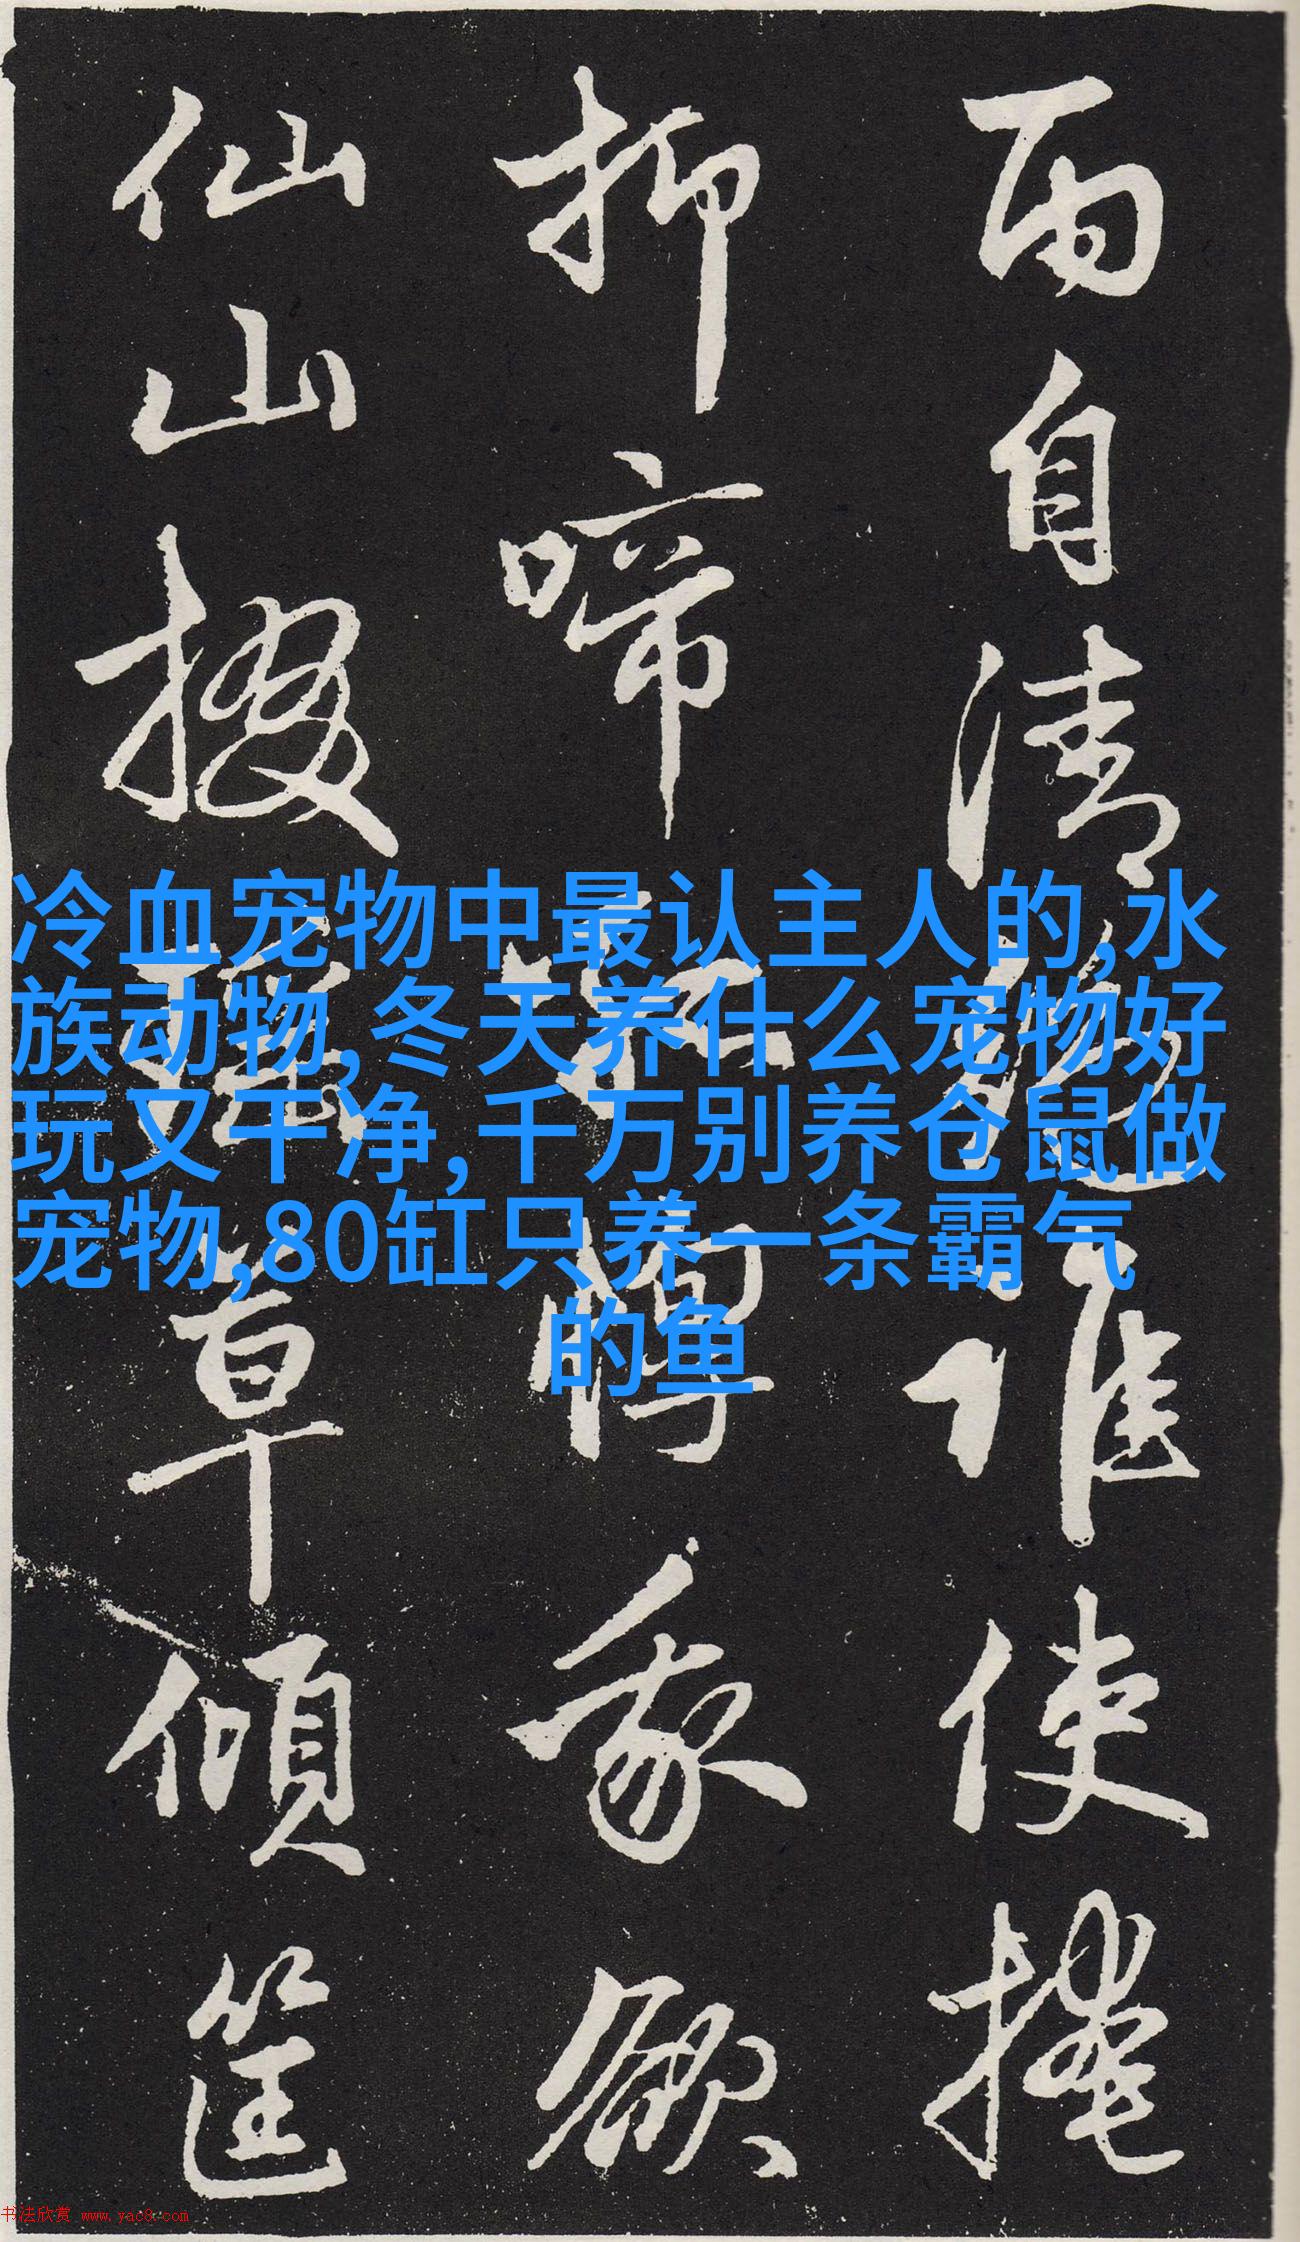 雨自清谁使掩
抑啼如悼我欲
仙山掇瑶草傾筐
冷血宠物中最认主人的,水
族动物,冬天养什么宠物好
玩又干净,千万别养仓鼠做
宠物,80缸只养一条霸气
的鱼
书法欣赏 www.yac8.com